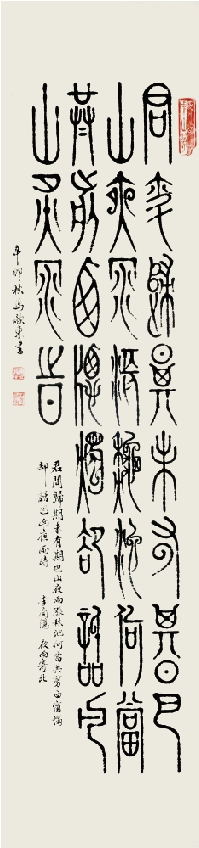 君問歸期未有期巴
山夜雨漲秋池何當
共剪西窗燭卻話巴
山夜雨時
辛卯秋
君問歸期未有期巴山夜雨漲秋池何當共剪西窗燭
却話巴山夜雨時 李商隱 夜雨寄北